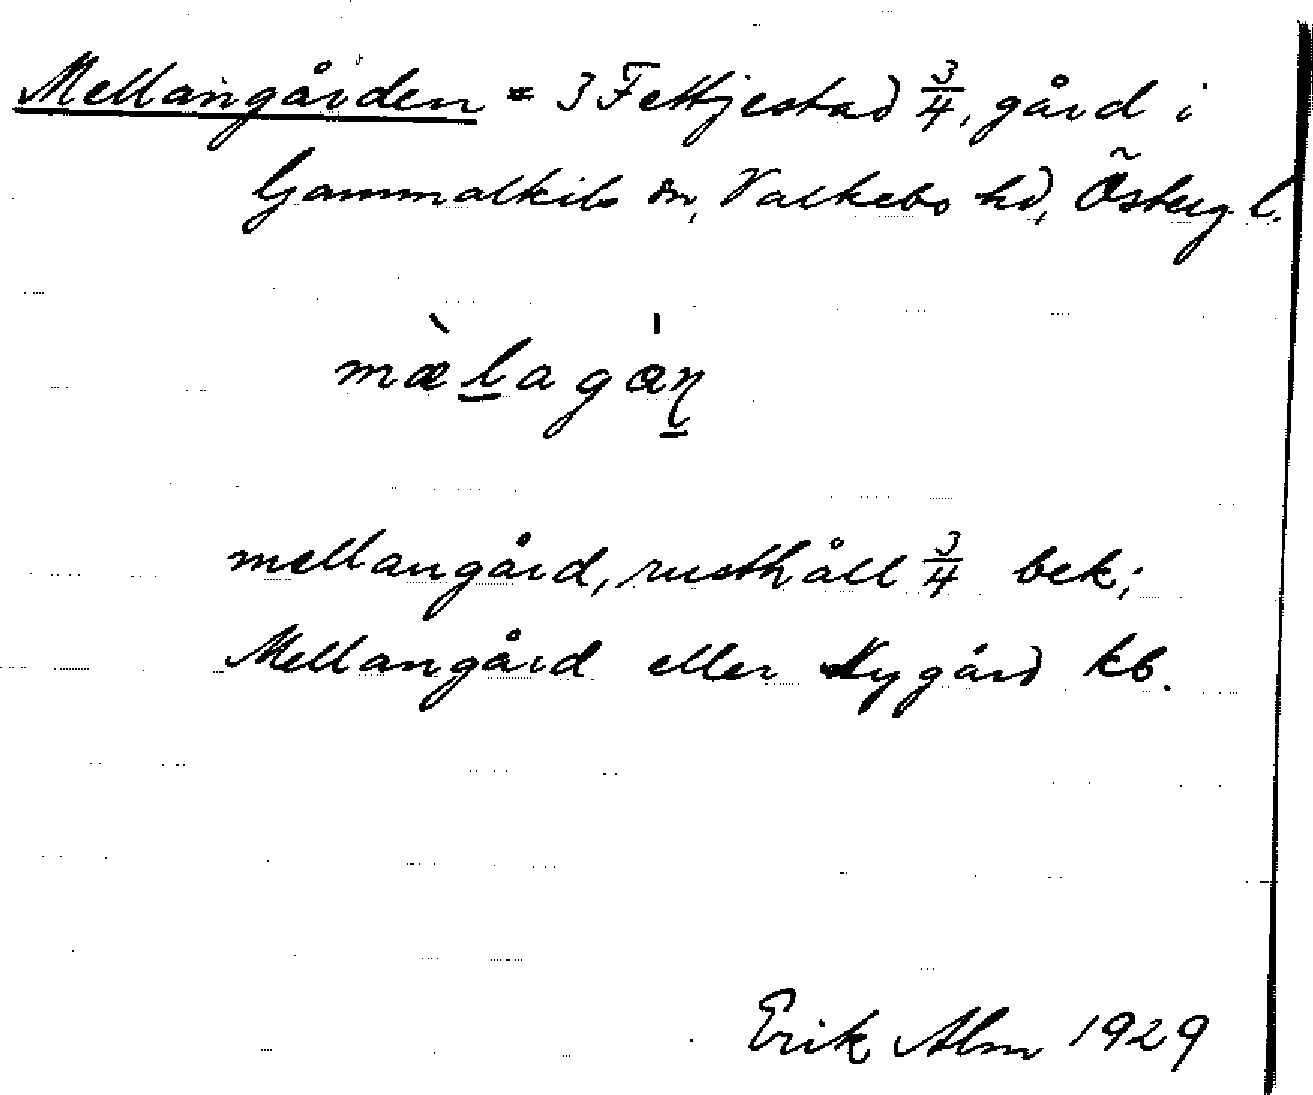 Mellangården = 3 Fettjestad 3/4, gård i
Gammalkils sn, Valkebo hd, Österg l.
mæ̀lagàṇ
mellangård, rusthåll 3/4 bek;
Mellangård eller Nygård kb.
Erik Alm 1929